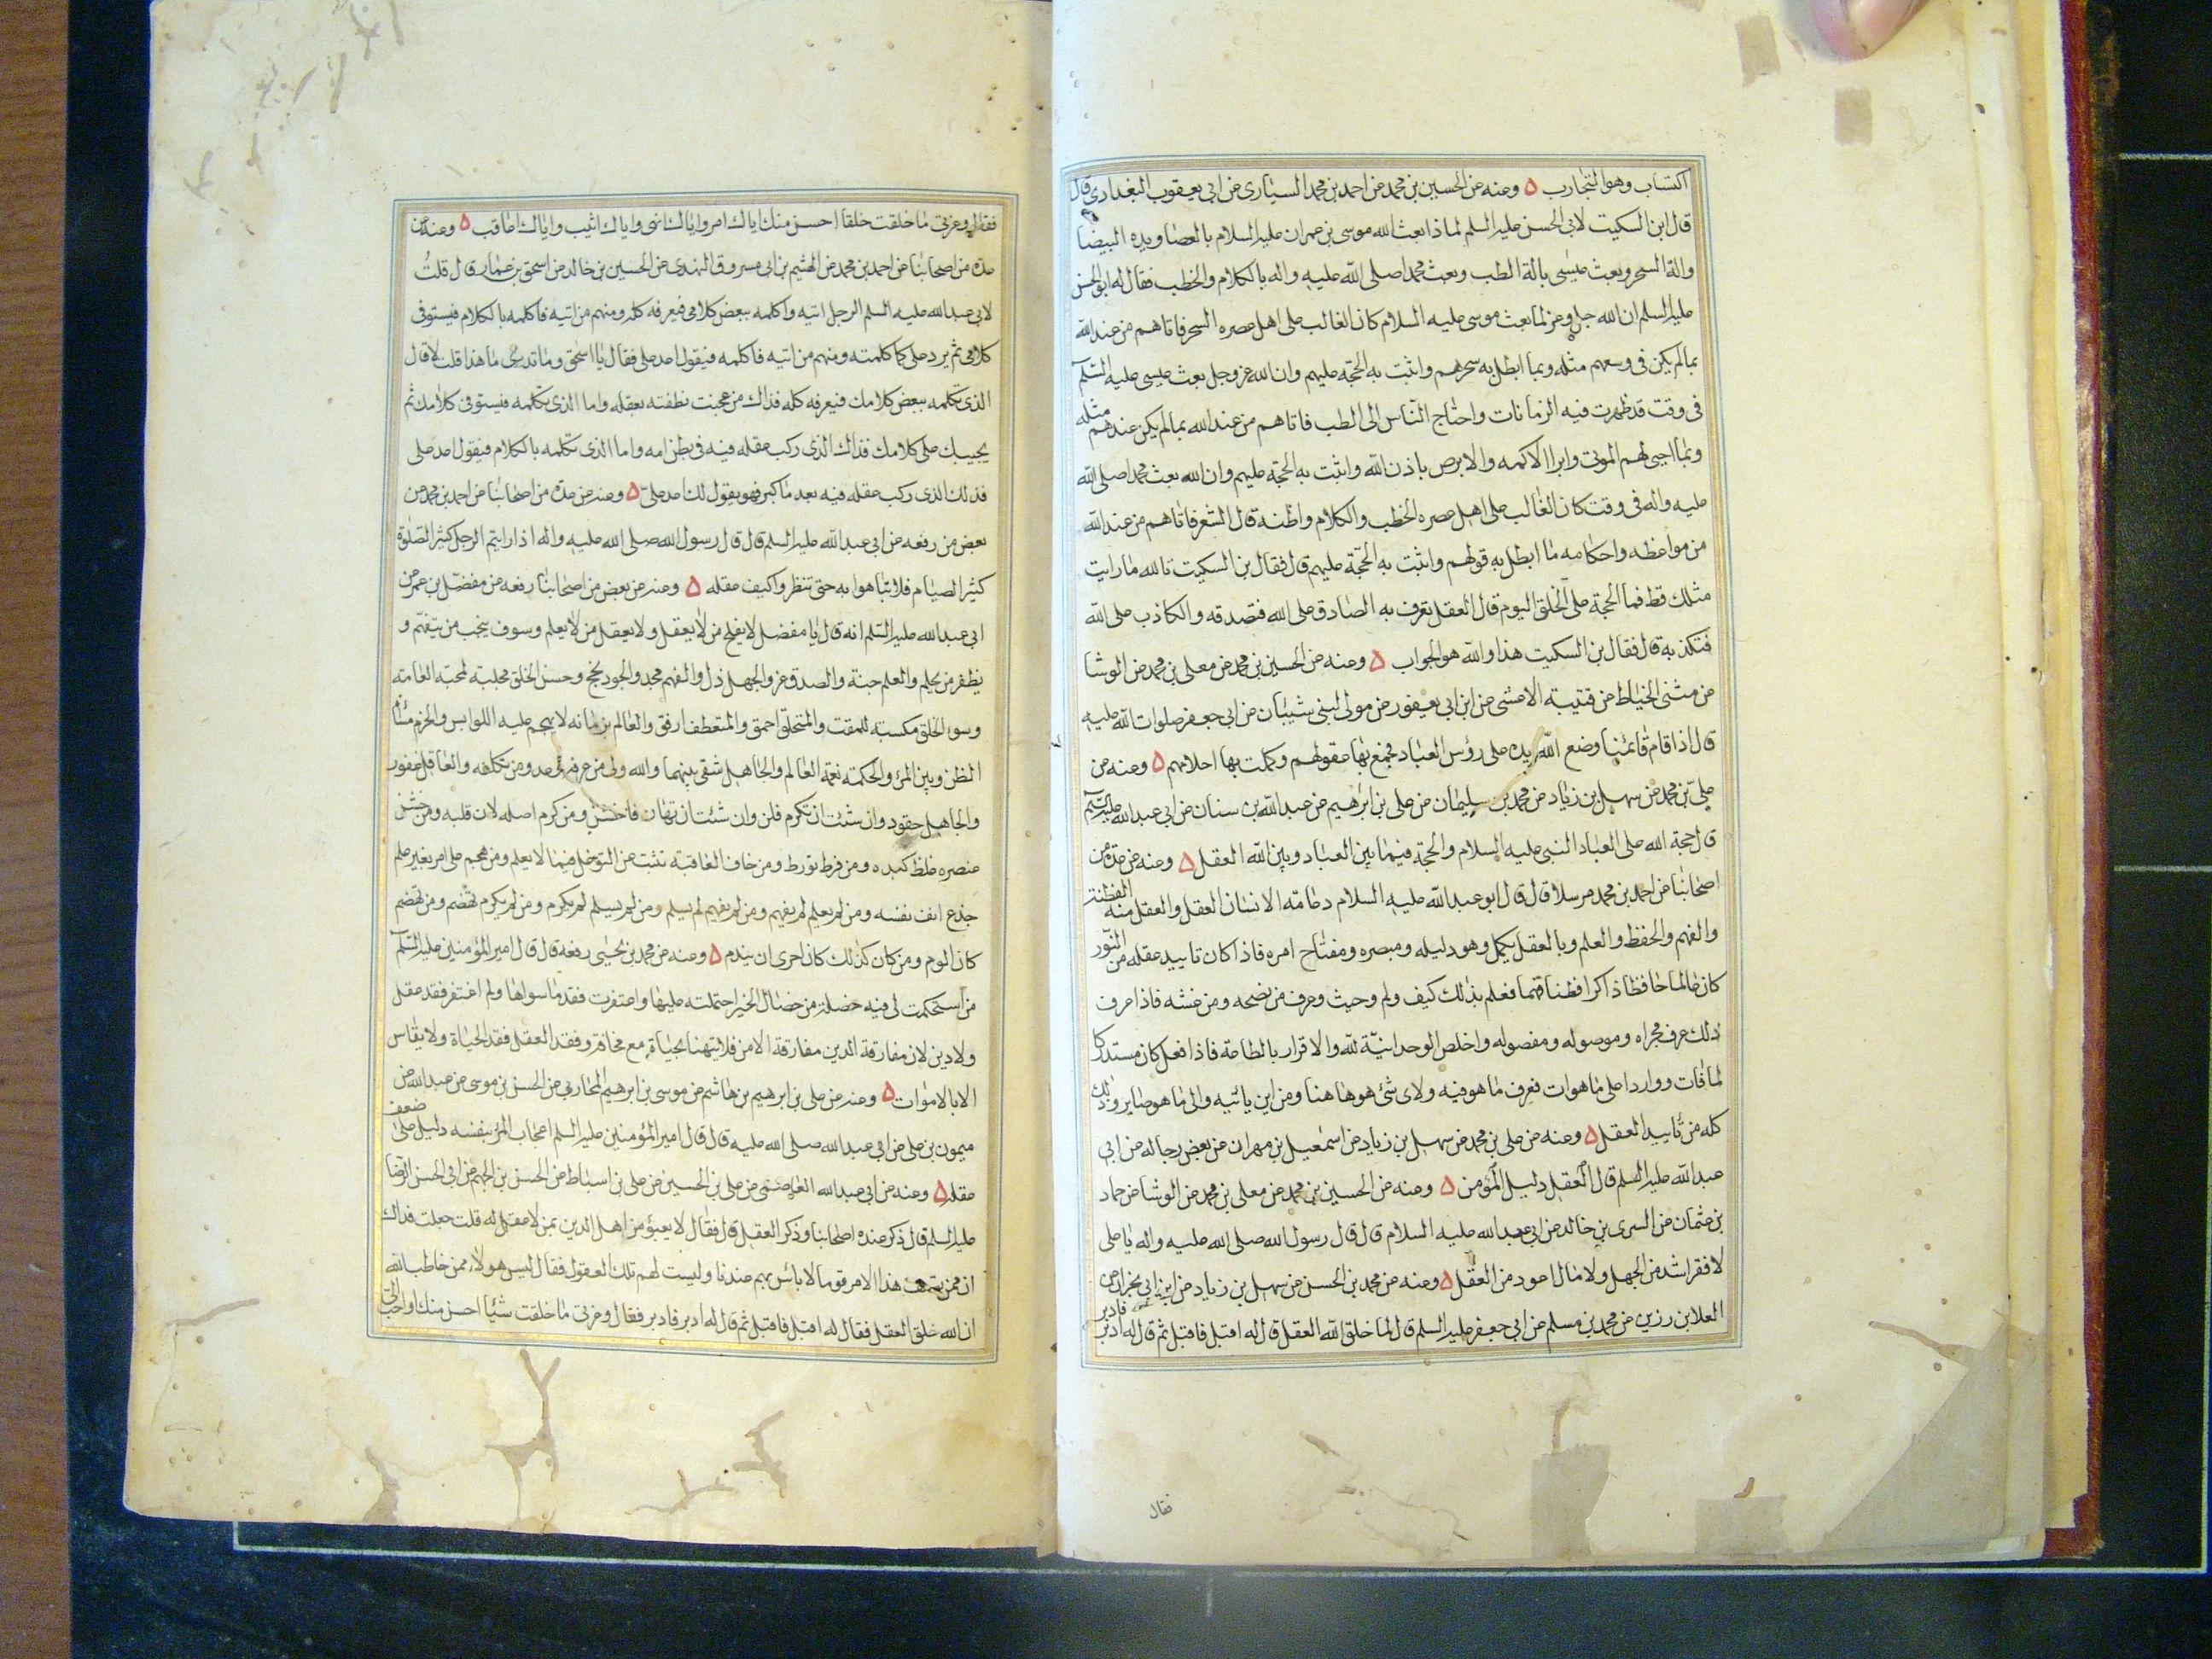 اكتساب وهو التجارب ۵ ومنه عن الحسين بن محمد عن احمد بن محمد السيارى عن ابى يعقوب البغدادى قال
قال ابن السكيت لابى الحسن عليه السلم لماذا بعث الله موسى بن عمران عليه السلام بالعصا ويده البيضا
والة السحر وبعث عيسى بالة الطب وبعث محمدا صلى الله عليه واله بالكلام والخطب فقال له ابو الحسن
عليه السلم ان الله جل وعز لما بعث موسى عليه السلام كان الغالب على اهل عصره السحر فاتاهم من عند الله
بما لم يكن فى وسعهم مثله وبما ابطل به سحرهم واثبت به الحجة عليهم وان الله عز وجل بعث عيسى عليه السلم
فى وقت قد ظهرت فيه الزمانات واحتاج الناس الى الطب فاتاهم من عند الله بما لم يكن عندهم مثله
وبما احيى لهم الموتى وابرا الاكمه والابرص باذن الله واثبت به الحجة عليهم وان الله بعث محمدا صلى الله
عليه واله فى وقت كان الغالب على اهل عصره الخطب والكلام واظنه قال الشعر فاتاهم من عند الله
من مواعظه واحكامه ما ابطل به قولهم واثبت به الحجة عليهم قال فقال بن السكيت تالله ما رايت
مثلك قط فما الحجة على الخلق اليوم قال العقل يعرف به الصادق على الله فتصدقه والكاذب على الله
فتكذبه قال فقال بن السكيت هذا والله هو الجواب ۵ ومنه عن الحسين بن محمد عن معلى بن محمد عن الوشا
عن مثنى الحناط عن قتيبة الاعشى عن ابن ابى يعفور عن مولى لبنى شيبان عن ابى جعفر صلوات الله عليه
قال اذا قام قائمنا وضع الله يده على رؤس العباد فجمع بها عقولهم وكملت بها احلامهم ۵ ومنه عن
على بن محمد عن سهل بن زياد عن محمد بن سليمان عن على بن ابراهيم عن عبد الله بن سنان عن ابى عبد الله عليه السلم
قال حجة الله على العباد النبى عليه السلام والحجة فيما بين العباد وبين الله العقل ۵ ومنه عن عدة من
اصحابنا عن احمد بن محمد مرسلا قال قال ابو عبد الله عليه السلام دعامة الانسان العقل والعقل منه الفطنة
والفهم والحفظ والعلم وبالعقل يكمل وهو دليله ومبصره ومفتاح امره فاذا كان تاييد عقله من النور
كان عالما حافظا ذاكرا فطنا فهما فعلم بذلك كيف ولم وحيث وعرف من نصحه ومن غشه فاذا عرف
ذلك عرف مجراه وموصوله ومفصوله واخلص الوحدانية لله والاقرار بالطاعة فاذا فعل كان مستدركا
لما فات وواردا على ما هوات فعرف ما هو فيه ولاى شئ هو هاهنا ومن اين ياتيه والى ما هو صاير وذلك
كله من تأييد العقل ۵ ومنه عن على بن محمد عن سهل بن زياد عن اسمعيل بن مهران عن بعض رجاله عن ابى
عبد الله عليه السلم قال العقل دليل المؤمن ۵ ومنه عن الحسين بن محمد عن معلى بن محمد عن الوشا عن حماد
بن عثمان عن السرى بن خالد عن ابى عبد الله عليه السلام قال قال رسول الله صلى الله عليه واله يا على
لا فقر اشد من الجهل ولا مال اعود من العقل ۵ ومنه عن محمد بن الحسن عن سهل بن زياد عن ابن ابى نجران عن
العلا بن رزين عن محمد بن مسلم عن ابى جعفر عليه السلم قال لما خلق الله العقل قال له اقبل فاقبل ثم قال له ادبر فادبر
فقال
فقال وعزتى ما خلقت خلقا احسن منك اياك امر واياك انهى واياك اثيب واياك اعاقب ۵ ومنه عن
عدة من اصحابنا عن احمد بن محمد عن الهيثم بن ابى مسروق النهدى عن الحسين بن خالد عن اسحق بن عمار قال قلت
لابى عبد الله عليه السلم الرجل اتيه واكلمه ببعض كلامى فيعرفه كله ومنهم من اتيه فاكلمه بالكلام فيستوفى
كلامى ثم يرده على كما كلمته ومنهم من اتيه فاكلمه فيقول اعد على فقال يا اسحق وما تدرى ما هذا قلت لا قال
الذى تكلمه ببعض كلامك فيعرفه كله فذاك من عجنت نطفته بعقله واما الذى تكلمه فيستوفى كلامك ثم
يجيبك على كلامك فذاك الذى ركب عقله فيه فى بطن امه واما الذى تكلمه بالكلام فيقول اعد على
فذلك الذى ركب عقله فيه بعد ما كبر فهو يقول لك اعد على ۵ ومنه عن عدة من اصحابنا عن احمد بن محمد عن
بعض من رفعه عن ابى عبد الله عليه السلم قال قال رسول الله صلى الله عليه واله اذا رايتم الرجل كثير الصلوة
كثير الصيام فلا تباهوا به حتى تنظروا كيف عقله ۵ ومنه عن بعض من اصحابنا رفعه عن مفضل بن عمر عن
ابى عبد الله عليه السلم انه قال يا مفضل لا يفلح من لا يعقل ولا يعقل من لا يعلم وسوف ينجب من يتفهم و
يظفر من يحلم والعلم جنة والصدق عز والجهل ذل والفهم مجد والجود نجح وحسن الخلق مجلبة لمحبة العامة
وسوء الخلق مكسبة للمقت والمتحلق احمق والمتعطف ارفق والعالم بزمانه لا يهجم عليه اللوابس والحزم مشاة
الظن وبين المرء والحكمة نعمة العالم والجاهل شقى بينهما والله ولى من عرفه وعدو من تكلفه والعاقل غفور
والجاهل حقود وان شئت ان تكرم فلن وان شئت ان تهان فاخشن ومن كرم اصله لان قلبه ومن خشن
عنصره غلظ كبده ومن فرط تورط ومن خاف العاقبة تثبت عن التوغل فيما لا يعلم ومن هجم على امر بغير علم
جذع انف نفسه ومن لم يعلم لم يفهم ومن لم يفهم لم يسلم ومن لم يسلم لم يكرم ومن لم يكرم تهضم ومن تهضم
كان الوم ومن كان كذلك كان احرى ان يندم ۵ ومنه عن محمد بن يحيى رفعه قال قال امير المؤمنين عليه السلم
من استحكمت لى فيه خصلة من خصال الخير احتملته عليها واغتفرت فقد ما سواها ولم اغتفر فقد عقل
ولا دين لان مفارقة الدين مفارقة الامن فلا يتهنأ بحياة مع مخافة وفقد العقل فقد الحياة ولا يقاس
الا بالاموات ۵ ومنه عن على بن ابرهيم بن هاشم عن موسى بن ابرهيم المحاربى عن الحسن بن موسى عن عبد الله عن
ميمون بن على عن ابى عبد الله صلى الله عليه قال قال امير المؤمنين عليه السلم اعجاب المرء بنفسه دليل على ضعف
عقله ۵ ومنه عن ابى عبد الله العاصمى عن على بن الحسين عن على بن اسباط عن الحسن بن الجهم عن ابى الحسن الرضا
عليه السلم قال ذكر عنده اصحابنا وذكر العقل قال فقال لا يعبؤ من اهل الدين بمن لا عقل له قلت جعلت فداك
ان ممن يصف هذا الامر قوما لا باس بهم عندنا وليست لهم تلك العقول فقال ليس هولاء ممن خاطب الله
ان الله خلق العقل فقال له اقبل فاقبل ثم قال له ادبر فادبر فقال وعزتى ما خلقت شيئا احسن منك او احب الى